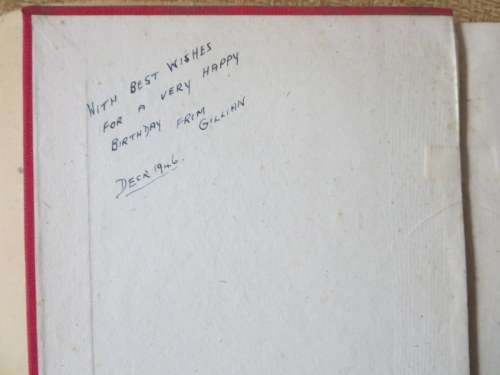 WITH BEST WISHES
FOR A VERY HAPPY
BIRTHDAY FRIM
GILLIAN
DECR 1946.